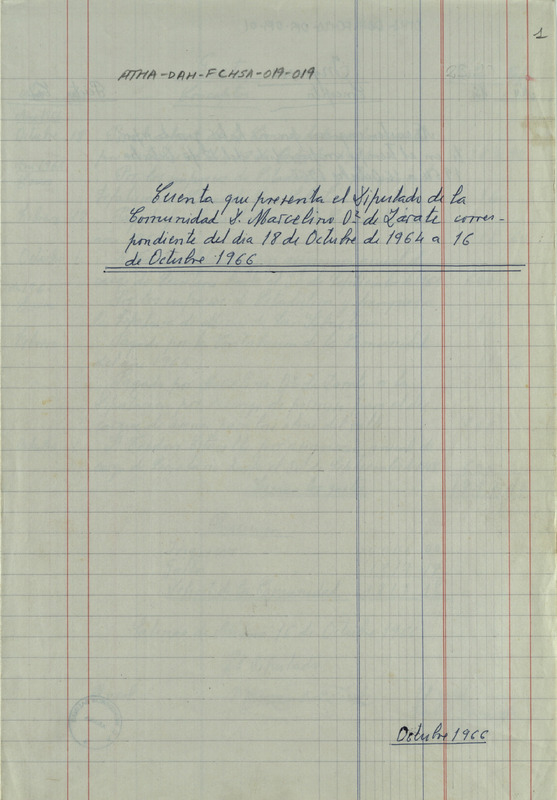 1
ATHA-DAH-FCHSA-019-019
Cuenta que presenta el Diputado de la
Comunidad D. Marcelino Oz. de Zarate corres-
pondiente del dia 18 de Octubre de 1964 a 16
de Octubre 1966
Octubre 1966